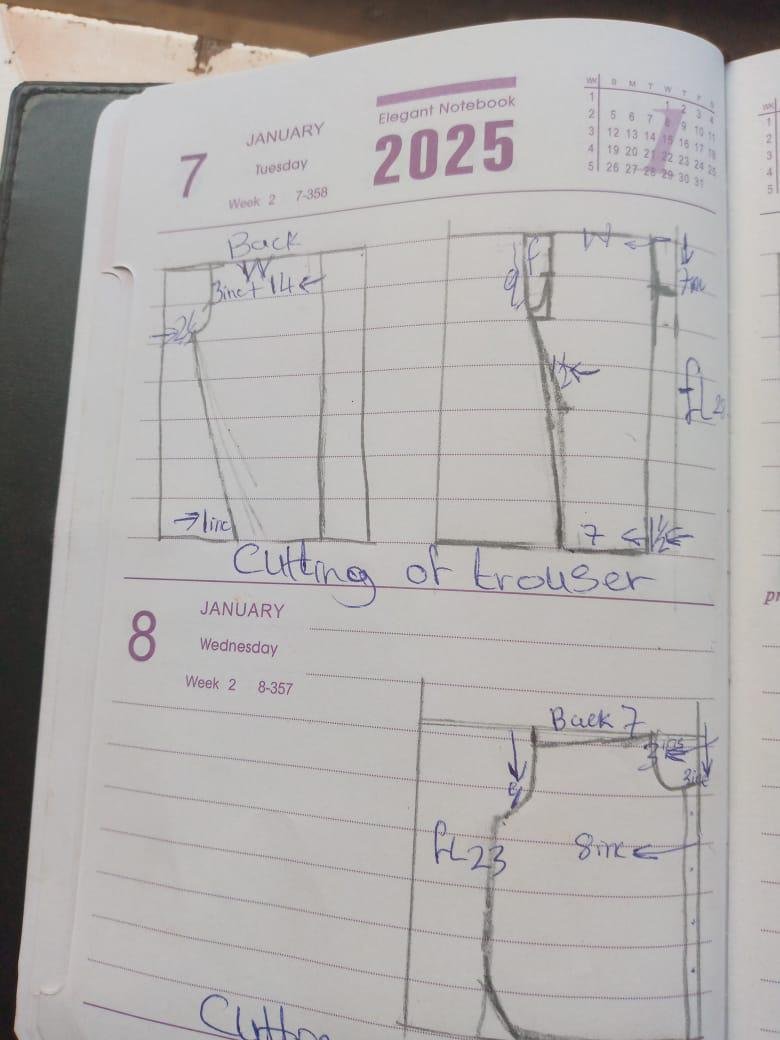 7
JANUARY
Tuesday
Week 2 7-358
Elegant Notebook
2025
WK S M T W T F S
1 1 2 3 4
2 5 6 7 8 9 10 11
3 12 13 14 15 16 17 18
4 19 20 21 22 23 24 25
5 26 27 28 29 30 31
Back
W
3inc + 14
1inc
f
W
9
1½
fL
7
1½
Cutting of trouser
8
JANUARY
Wednesday
Week 2 8-357
Back 7
3ins
9
fL 23
8inc